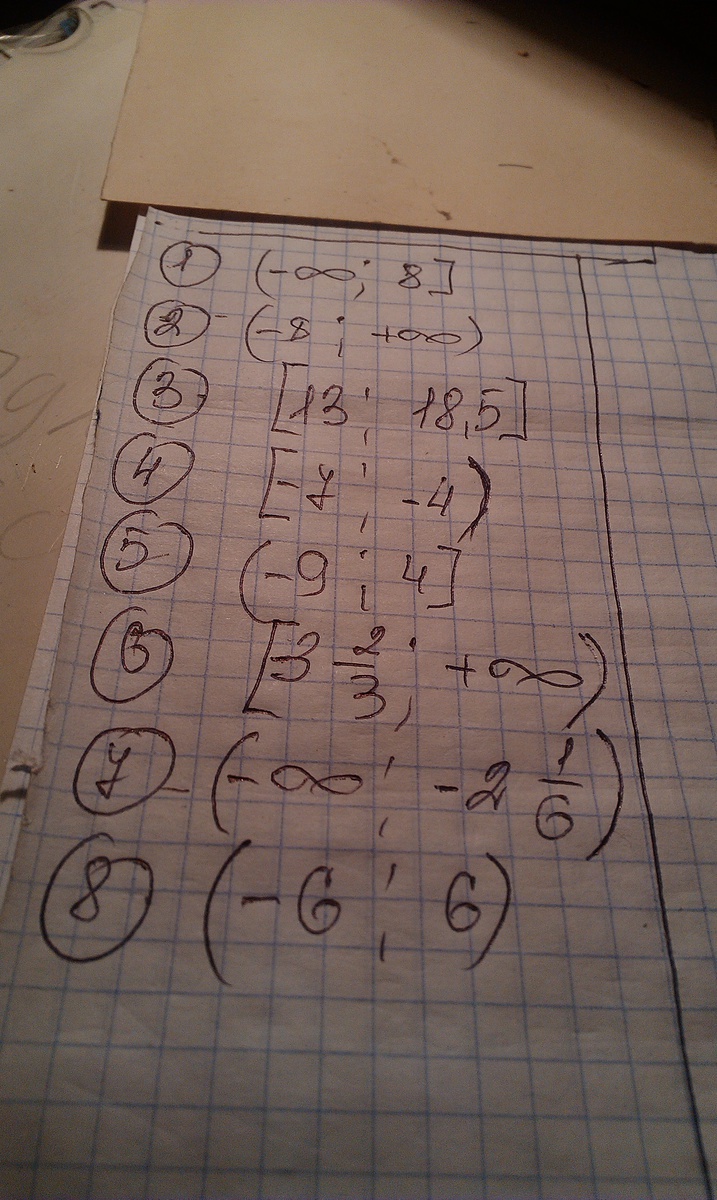 ① (-∞; 8]
② (-8; +∞)
③ [13; 18,5]
④ [-7; -4)
⑤ (-9; 4]
⑥ [3 2/3; +∞)
⑦ (-∞; -2 1/6)
⑧ (-6; 6)